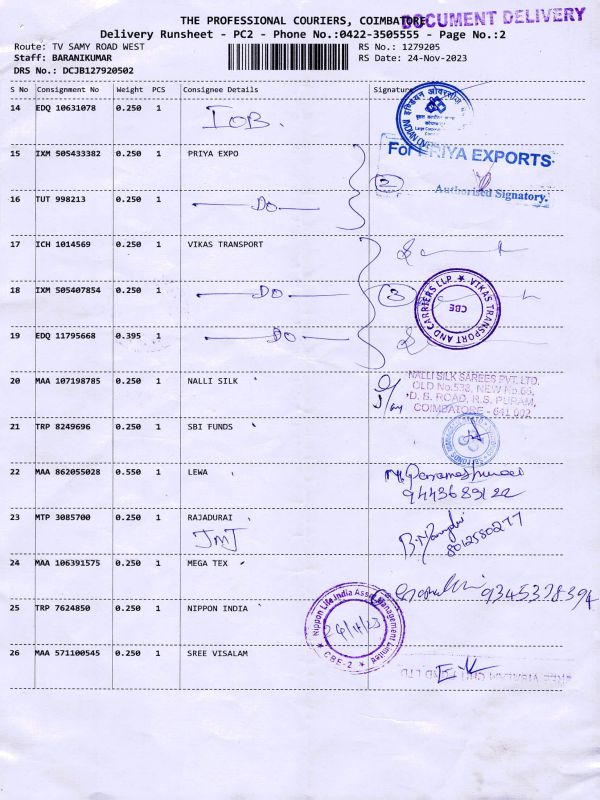 THE PROFESSIONAL COURIERS, COIMBATORE
DOCUMENT DELIVERY
Delivery Runsheet - PC2 - Phone No.:0422-3505555 - Page No.:2
Route: TV SAMY ROAD WEST
RS No.: 1279205
Staff: BARANIKUMAR
RS Date: 24-Nov-2023
DRS No.: DCJB127920502
S No Consignment No Weight PCS Consignee Details Signature
14 EDQ 10631078 0.250 1 IOB.
15 IXM 505433382 0.250 1 PRIYA EXPO
For PRIYA EXPORTS
2
Authorised Signatory.
16 TUT 998213 0.250 1 DO
17 ICH 1014569 0.250 1 VIKAS TRANSPORT
18 IXM 505407854 0.250 1 DO 3
VIKAS TRANSPORT AND CARRIERS LLP ★ CBE
19 EDQ 11795668 0.395 1 DO
20 MAA 107198785 0.250 1 NALLI SILK
NALLI SILK SAREES PVT. LTD.
OLD No.538, NEW No.66,
D. B. ROAD, R.S. PURAM,
COIMBATORE - 641 002
21 TRP 8249696 0.250 1 SBI FUNDS
22 MAA 862055028 0.550 1 LEWA
9443689122
23 MTP 3085700 0.250 1 RAJADURAI
JMJ
8012580277
24 MAA 106391575 0.250 1 MEGA TEX
9345378394
25 TRP 7624850 0.250 1 NIPPON INDIA
Nippon Life India Asset Management Limited
★ CBE-2 ★
26 MAA 571100545 0.250 1 SREE VISALAM